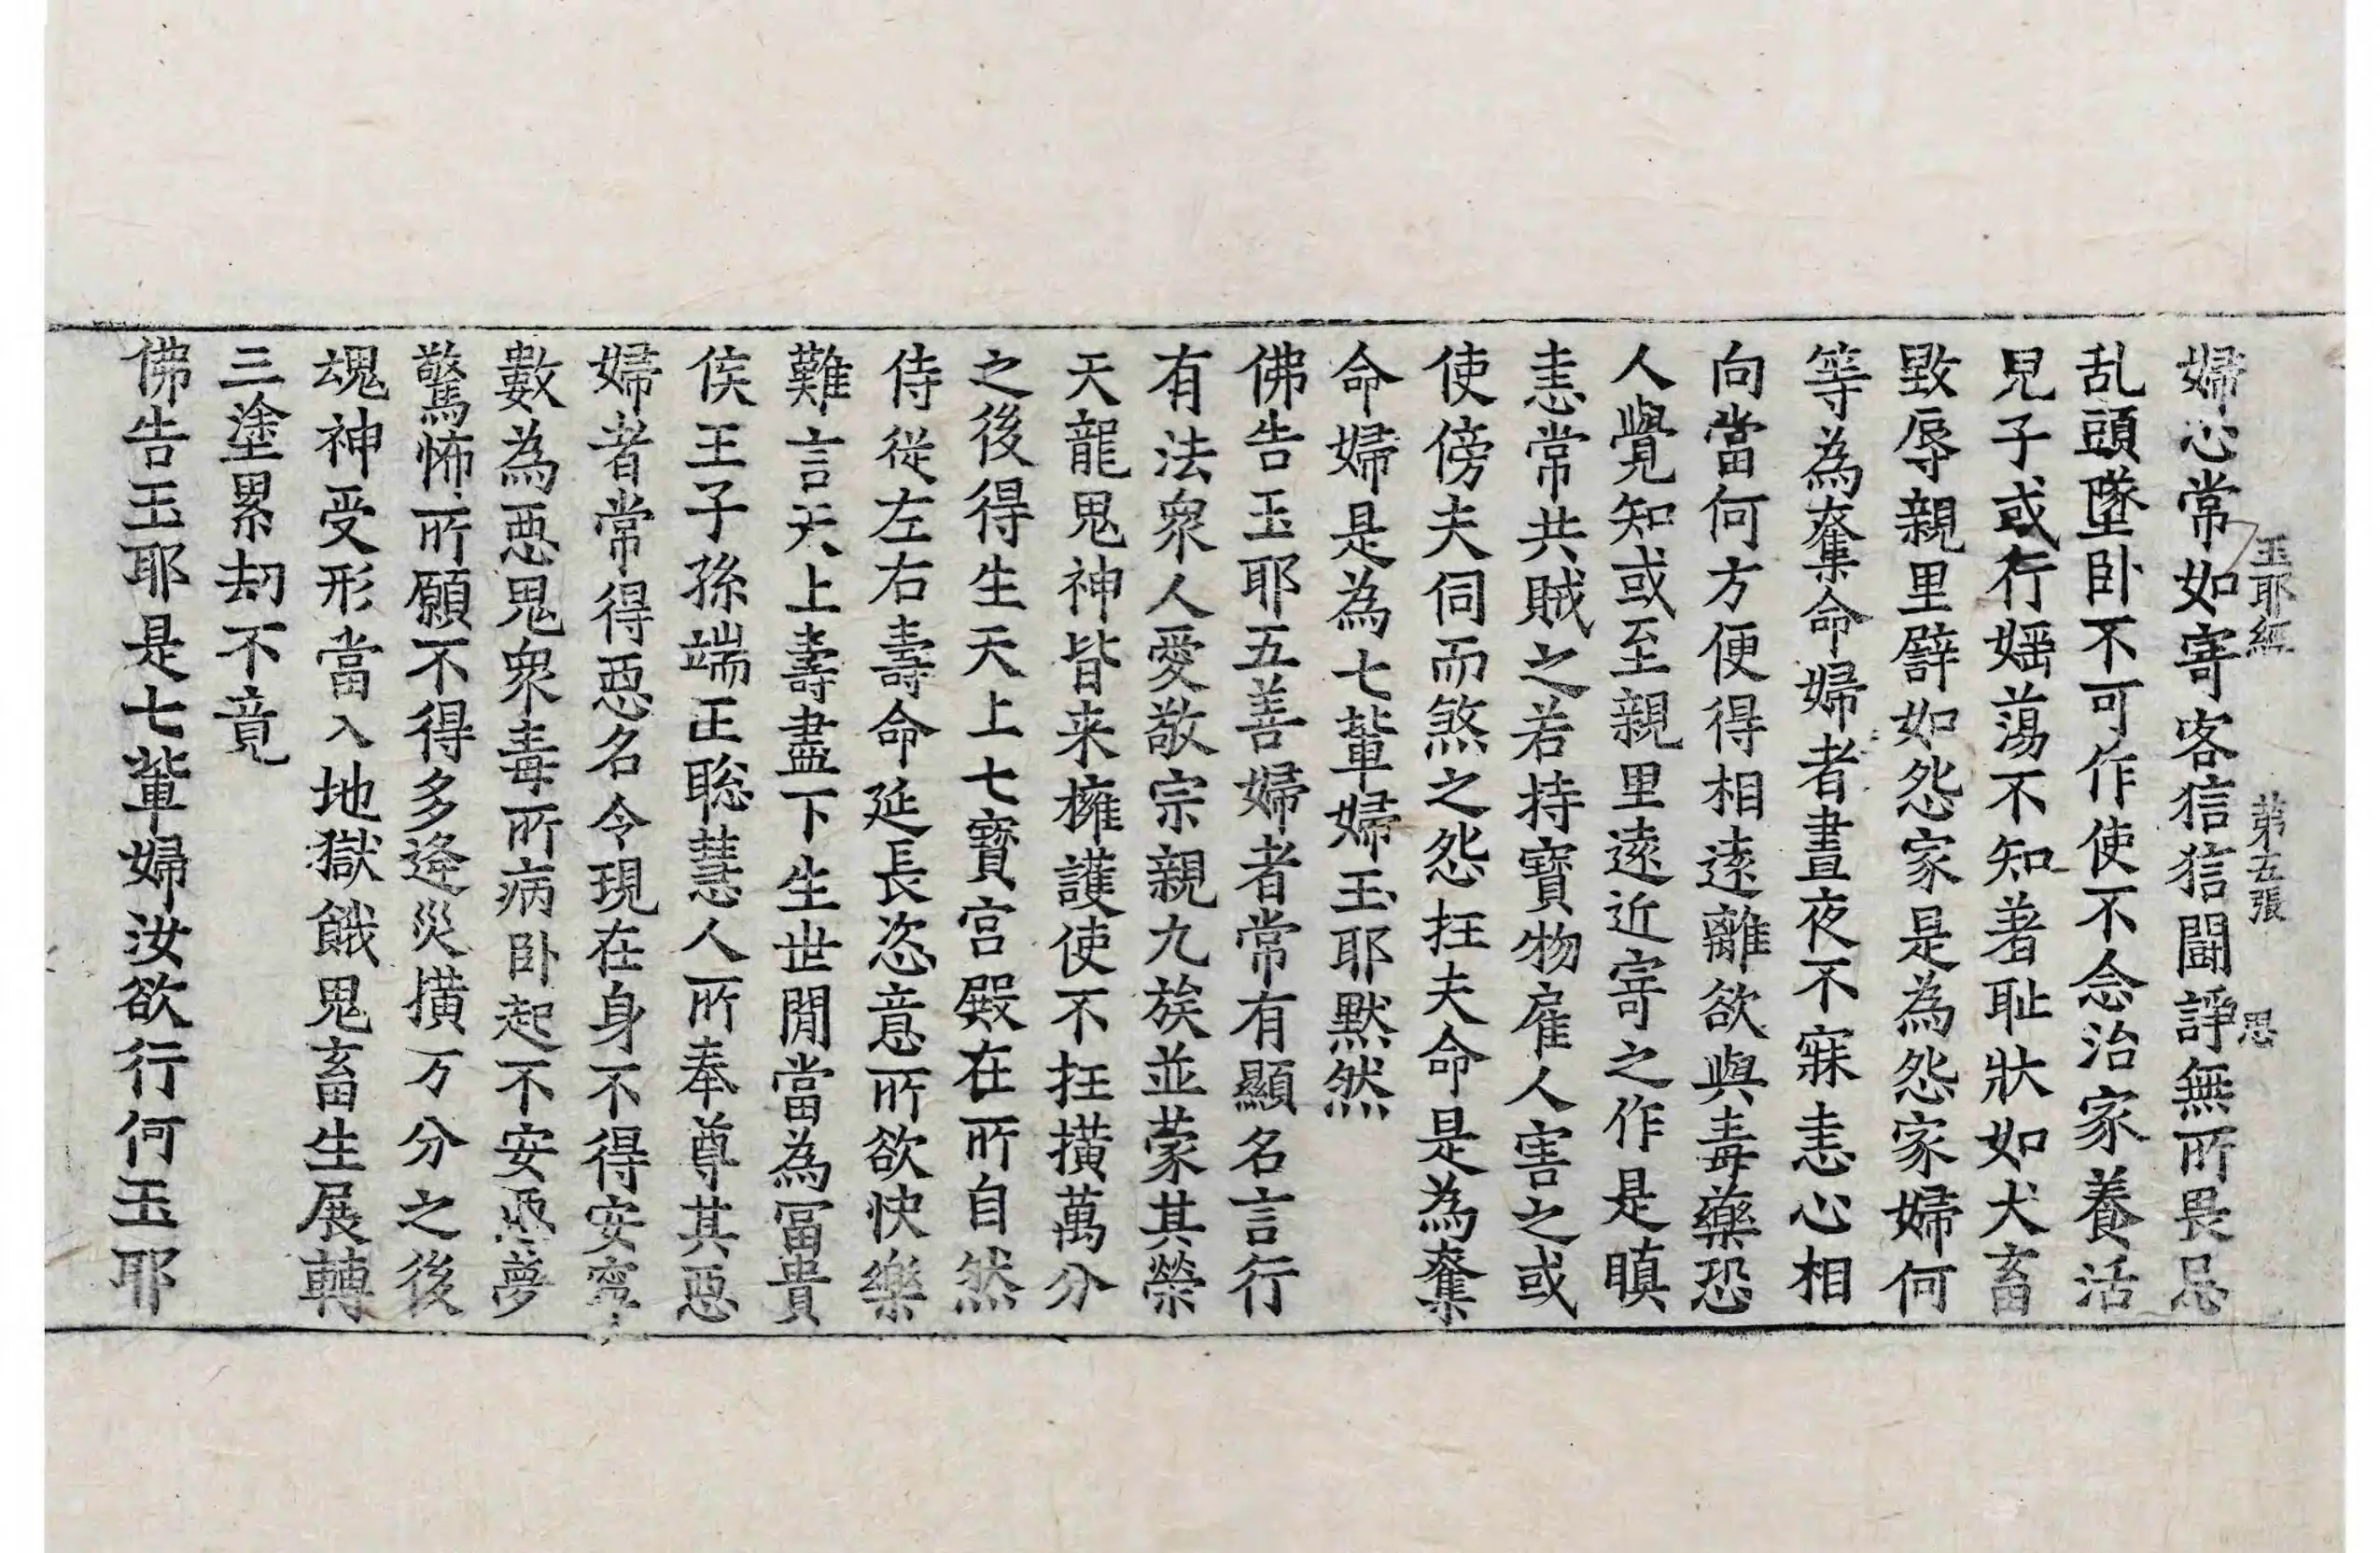 玉耶經 第五張 思
婦心常如寄客狺狺鬪諍無所畏忌
乱頭墜卧不可作使不念治家養活
兒子或行婬蕩不知著恥狀如犬畜
毀辱親里譬如怨家是為怨家婦何
等為奪命婦者晝夜不寐恚心相
向當何方便得相遠離欲與毒藥恐
人覺知或至親里遠近寄之作是瞋
恚常共賊之若持寶物雇人害之或
使傍夫伺而煞之怨抂夫命是為奪
命婦是為七輩婦玉耶默然
佛告玉耶五善婦者常有顯名言行
有法衆人愛敬宗親九族並蒙其榮
天龍鬼神皆来擁護使不抂撗萬分
之後得生天上七寶宮殿在所自然
侍從左右壽命延長恣意所欲快樂
難言天上壽盡下生世閒當為冨貴
侯王子孫端正聡慧人所奉尊其惡
婦者常得惡名令現在身不得安寧
數為惡鬼衆毒所病卧起不安惡夢
驚怖所願不得多逢災撗万分之後
魂神受形當入地獄餓鬼畜生展轉
三塗累劫不竟
佛告玉耶是七輩婦汝欲行何玉耶